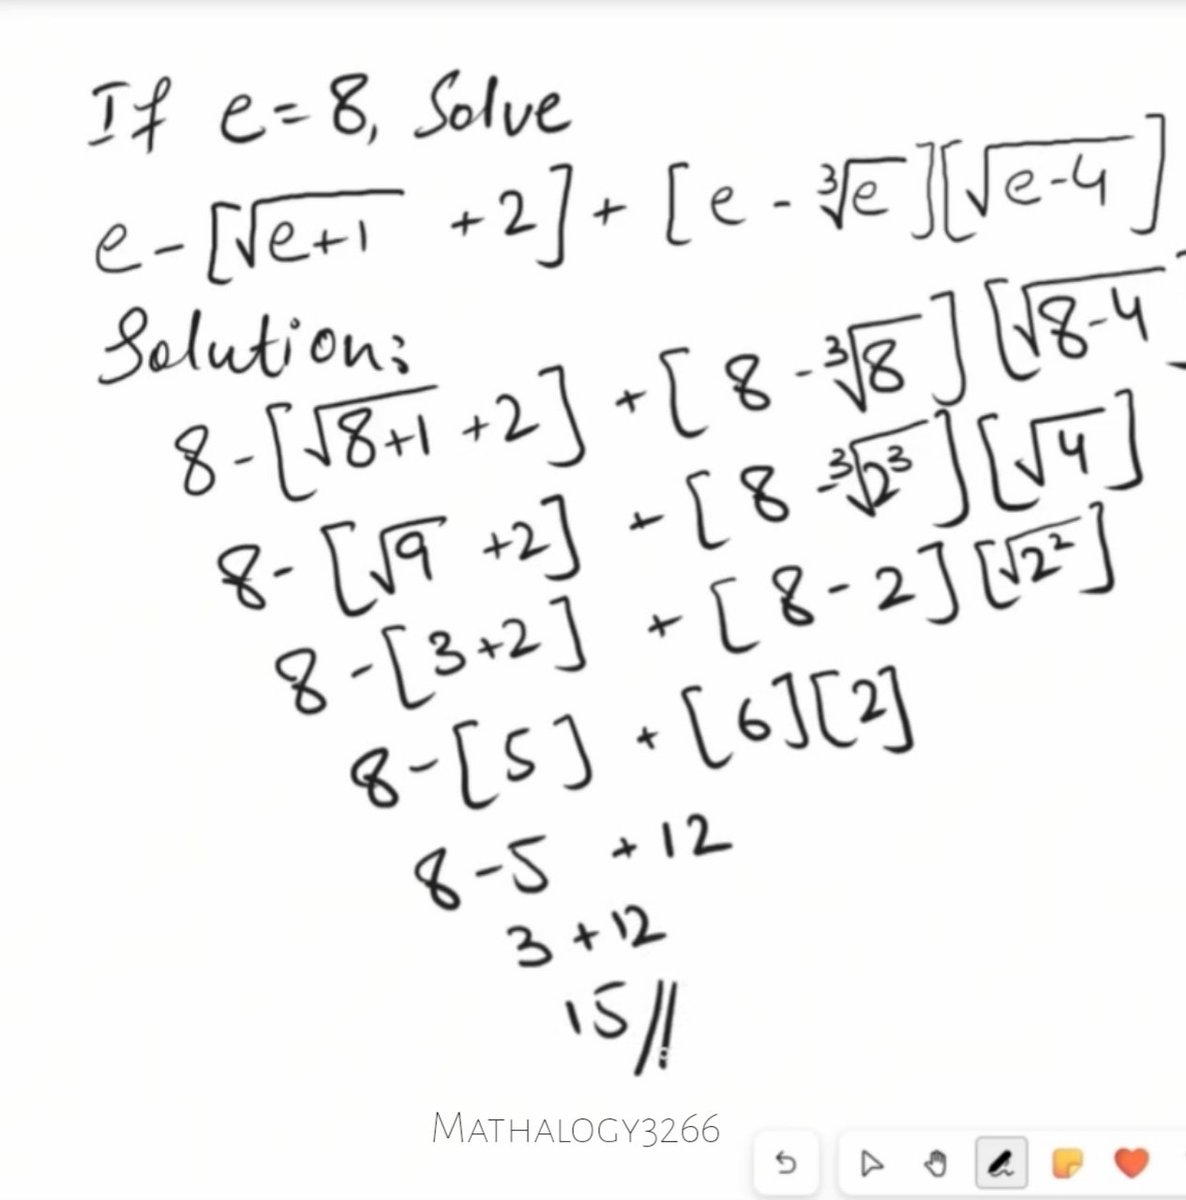 If e=8, Solve
e-[√(e+1) +2]+[e-³√e][√(e-4)]
Solution:
8-[√(8+1)+2]+[8-³√8][√(8-4)]
8-[√9 +2]+[8-³√2³][√4]
8-[3+2]+[8-2][√2²]
8-[5]+[6][2]
8-5 +12
3+12
15//
MATHALOGY3266